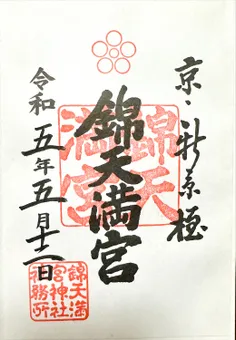 京・新京極
錦天満宮
錦天
満宮
令和五年五月十二日
錦天満
宮神社
務所